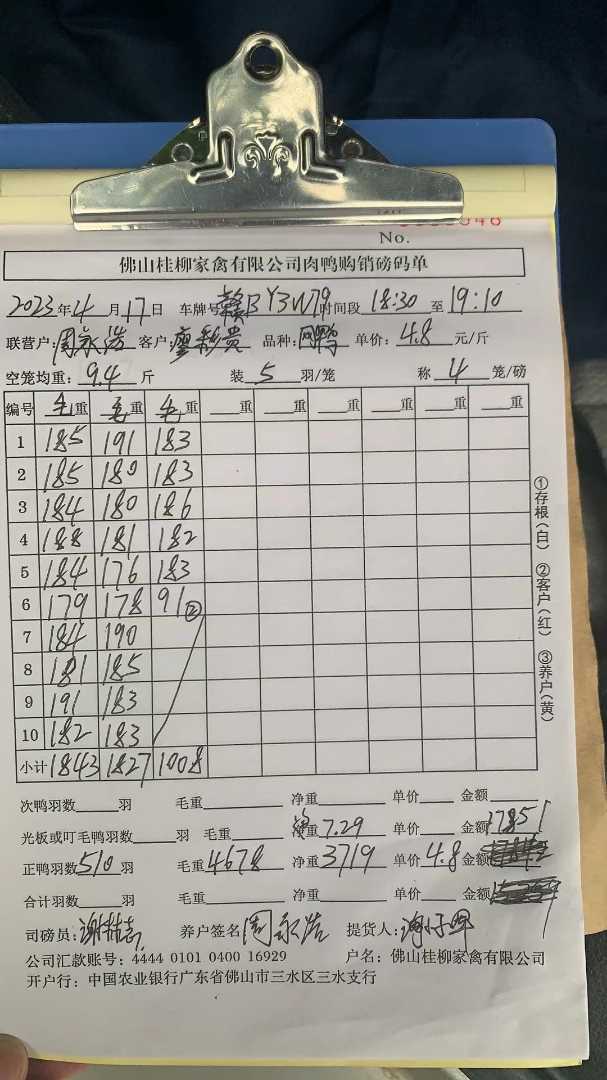 No.
佛山桂柳家禽有限公司肉鸭购销磅码单
2023年4月17日 车牌号赣BY3W79时间段18:30至19:10
联营户:周永浩 客户:廖彩贵 品种: 单价:4.8元/斤
空笼均重:9.4斤 装5羽/笼 称4笼/磅
编号 毛重 毛重 毛重 重 重 重 重 重 重
1 185 191 183
2 185 180 183
3 184 180 186
4 188 181 182
5 184 176 183
6 179 178 91②
7 184 190
8 181 185
9 191 183
10 182 183
小计 1843 1827 1008
①存根(白) ②客户(红) ③养户(黄)
次鸭羽数 羽 毛重 净重 单价 金额
光板或叮毛鸭羽数 羽 毛重 净重7.29 单价 金额17851
正鸭羽数510羽 毛重4678 净重3719 单价4.8 金额
合计羽数 羽 毛重 净重 单价 金额
司磅员: 养户签名周永浩 提货人:
公司汇款账号:4444 0101 0400 16929 户名:佛山桂柳家禽有限公司
开户行:中国农业银行广东省佛山市三水区三水支行